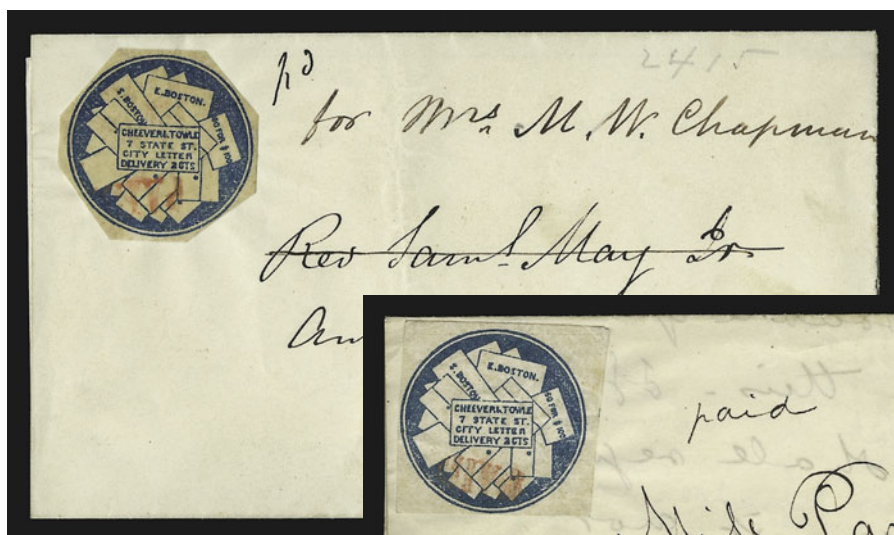 S. BOSTON
E. BOSTON.
60 FOR $ 100
CHEEVER & TOWLE
7 STATE ST.
CITY LETTER
DELIVERY 2 CTS
pd
2415
for Mrs M. W. Chapman
Rev Saml May Jr
An
S. BOSTON
E. BOSTON.
60 FOR $ 100
CHEEVER & TOWLE
7 STATE ST.
CITY LETTER
DELIVERY 2 CTS
PAID
paid
this